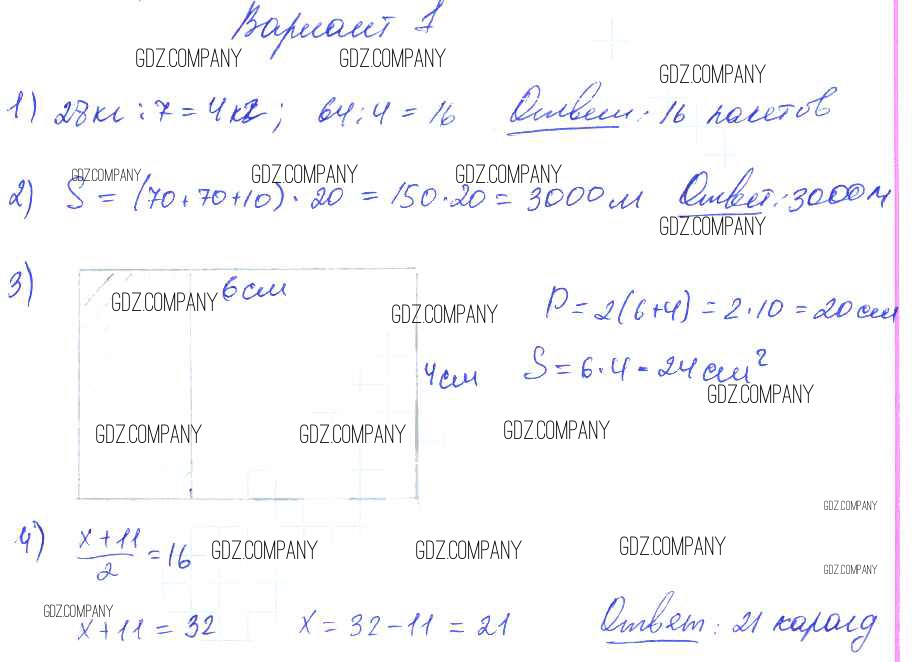 Вариант 1
GDZ.COMPANY GDZ.COMPANY GDZ.COMPANY
1) 28кг : 7 = 4кг ; 64 : 4 = 16 Ответ : 16 пакетов
GDZ.COMPANY GDZ.COMPANY GDZ.COMPANY
2) S = (70+70+10) · 20 = 150 · 20 = 3000 м Ответ : 3000 м
GDZ.COMPANY
3) 6 см
GDZ.COMPANY GDZ.COMPANY
P = 2(6+4) = 2 · 10 = 20 см
4 см S = 6 · 4 = 24 см²
GDZ.COMPANY
GDZ.COMPANY GDZ.COMPANY GDZ.COMPANY
GDZ.COMPANY
4) x + 11 / 2 = 16
GDZ.COMPANY GDZ.COMPANY GDZ.COMPANY
GDZ.COMPANY
GDZ.COMPANY
x + 11 = 32 x = 32 - 11 = 21 Ответ : 21 каранд